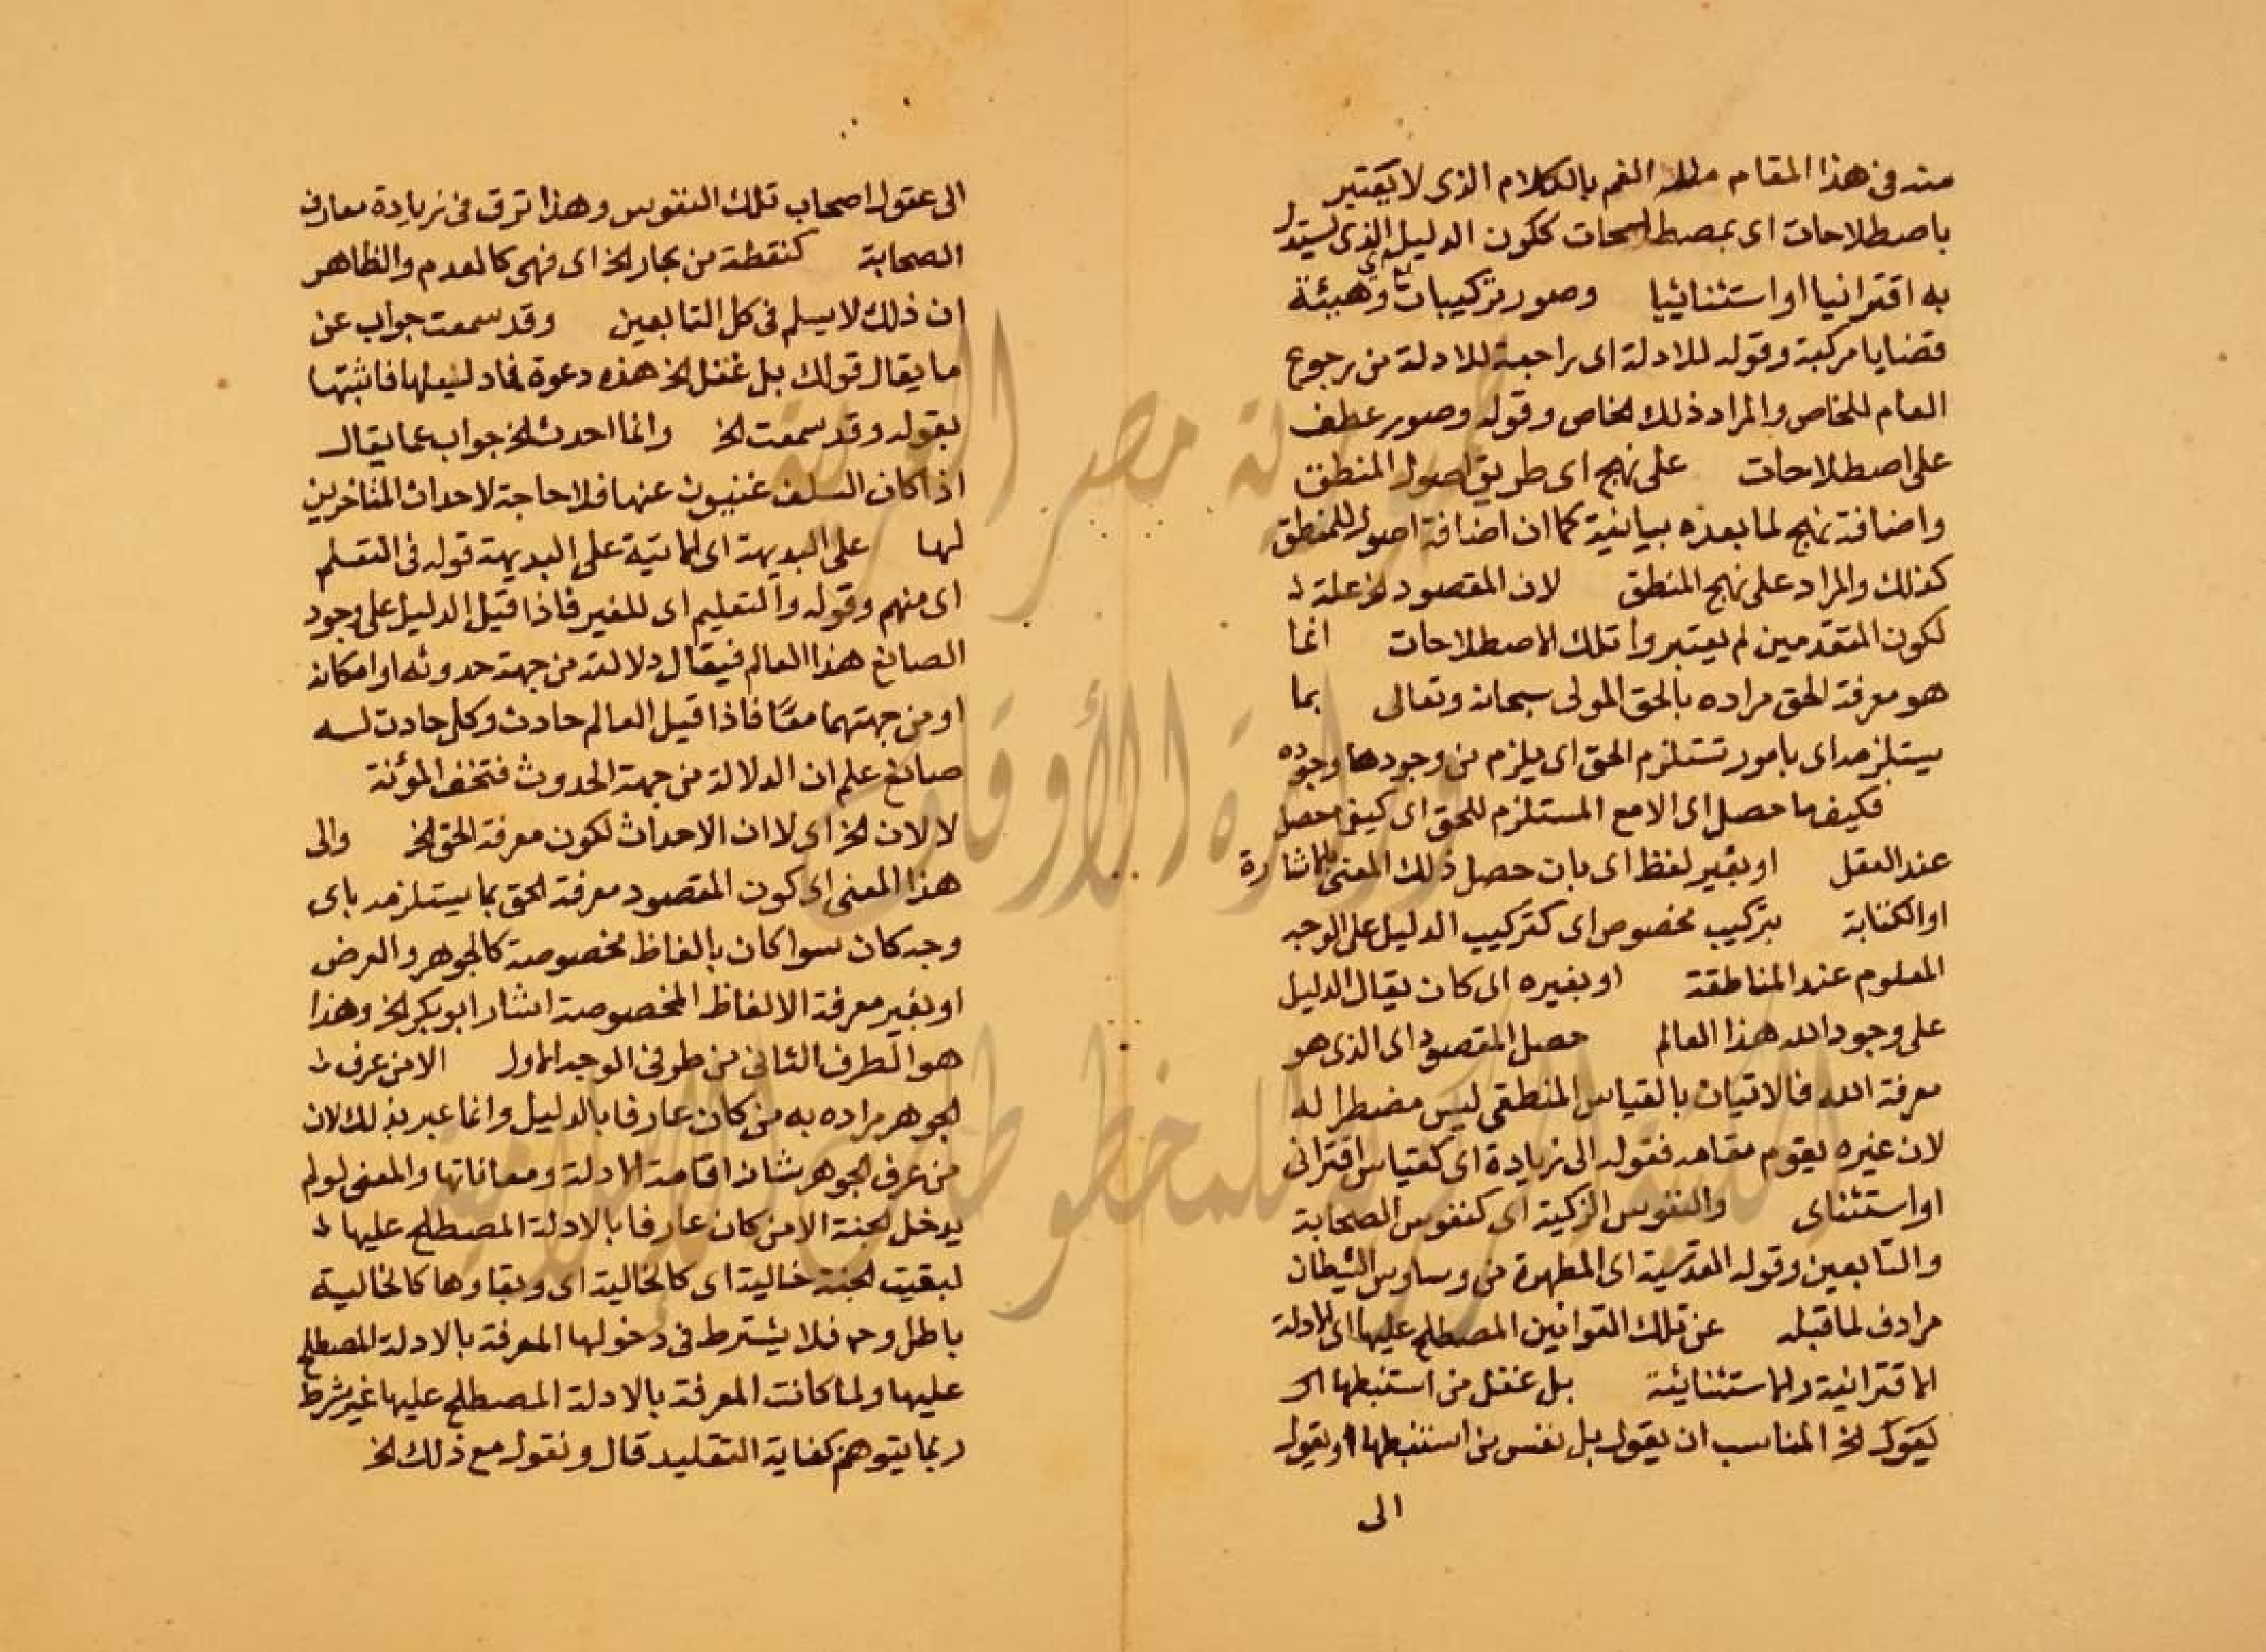 منه فى هذا المقام مطلب الفم بالكلام الذى لا يعتبر
باصطلاحات اى بمصطلحات ككون الدليل الذى يستدل
به اقترانيا او استثنائيا وصور تركيبات اى وهيئة
قضايا مركبة وقوله للادلة اى راجعة للادلة من رجوع
العام للخاص والمراد ذلك الخاص وقوله وصور عطف
على اصطلاحات على نهج اى طريق اصول المنطق
واضافة نهج لما بعده بيانية كما ان اضافة اصول للمنطق
كذلك والمراد على نهج المنطق لان المقصود الخ علة
لكون المتقدمين لم يعتبروا تلك الاصطلاحات انما
هو معرفة الحق مراده بالحق المولى سبحانه وتعالى بما
يستلزمه اى بامور تستلزم الحق اى يلزم من وجودها وجوده
فكيف ما حصل اى الامع المستلزم للحق اى كيف حصل
عند العقل او بغير لفظ اى بان حصل ذلك المعنى بالاشارة
او الكتابة بتركيب مخصوص اى كتركيب الدليل على الوجه
المعلوم عند المناطقة او بغيره اى كان يقال الدليل
على وجود الله هذا العالم حصل المقصود اى الذى هو
معرفة الله فالاتيان بالقياس المنطقى ليس مضطرا له
لان غيره يقوم مقامه فقوله الى زيادة اى كقياس اقترانى
او استثناى والنفوس الزكية اى كنفوس الصحابة
والتابعين وقوله القدسية اى المطهرة من وساوس الشيطان
مرادف لما قبله عن تلك القوانين المصطلح عليها اى الادلة
الاقترانية والاستثنائية بل عقل من استنبطها الخ
يقول الخ المناسب ان يقول بل نفس من استنبطها او يقول
الى
الى عقول اصحاب تلك النفوس وهذا ترق فى زيادة معارف
الصحابة كنقطة من بحار الخ اى فهى كالعدم والظاهر
ان ذلك لا يسلم فى كل التابعين وقد سمعت جواب عن
ما يقال قولك بل عقل الخ هذه دعوة فما دليلها فاثبتها
بقوله وقد سمعت الخ وانما احدث الخ جواب عما يقال
اذا كان السلف غنيون عنها فلا حاجة لاحداث المتاخرين
لها على البديهة اى الماتية على البديهة قوله فى التعلم
اى منهم وقوله والتعليم اى للغير فاذا قيل الدليل على وجود
الصانع هذا العالم فيقال دلالته من جهة حدوثه او امكانه
او من جهتهما معا فاذا قيل العالم حادث وكل حادث له
صانع علم ان الدلالة من جهة الحدوث فتخف المؤنة
لا لان الخ اى لا ان الاحداث لكون معرفة الحق الخ والى
هذا المعنى اى كون المقصود معرفة الحق بما يستلزمه باى
وجه كان سوا كان بالفاظ مخصوصة كالجوهر والعرض
او بغير معرفة الالفاظ المخصوصة اشار ابو بكر الخ وهذا
هو الطرف الثانى من طرفى الوجه الاول الا من عرف
الجوهر مراده به من كان عارفا بالدليل وانما عبر بذلك لان
من عرف الجوهر شانه اقامة الادلة ومعاناتها والمعنى لو لم
يدخل الجنة الا من كان عارفا بالادلة المصطلح عليها
لبقيت الجنة خالية اى كالخالية اى وبقاوها كالخالية
باطل وح فلا يشترط فى دخولها المعرفة بالادلة المصطلح
عليها ولما كانت المعرفة بالادلة المصطلح عليها غير شرط
ربما يتوهم كفاية التقليد قال ونقول مع ذلك الخ
جمهورية مصر العربية
وزارة الأوقاف
المكتبة المركزية للمخطوطات الإسلامية